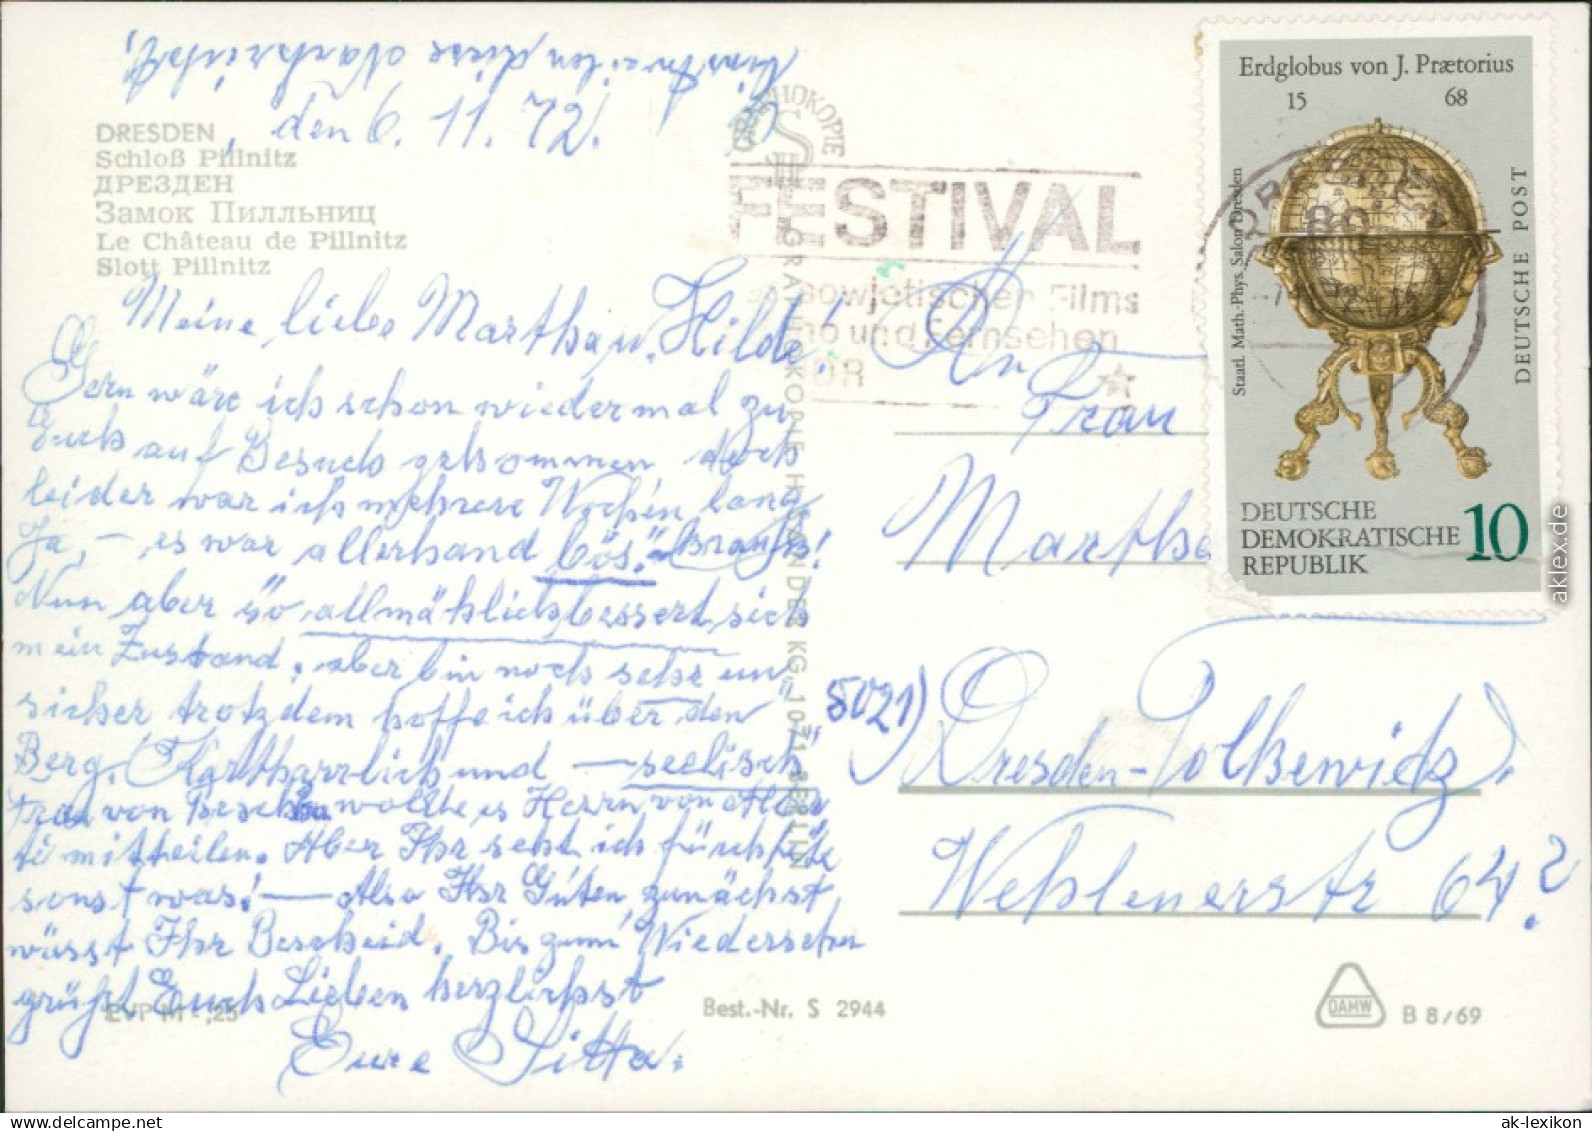 Einstweilen diese Nachricht,
den 6. 11. 72.
DRESDEN
Schloß Pillnitz
ДРЕЗДЕН
Замок Пилльниц
Le Château de Pillnitz
Slott Pillnitz
Meine liebe Martha u. Hilde!
Gern wäre ich schon wiedermal zu
Euch auf Besuch gekommen, doch
leider war ich mehrere Wochen lang
Ja, – es war allerhand bös."
Nun aber so allmählich bessert sich
mein Zustand, aber bin noch sehr un
sicher trotzdem hoffe ich über den
Berg. und – seelisch"
von wollte es Herrn von
ti mitteilen. Aber Ihr seht ich
sonst was! – Also Ihr Guten, zunächst
wüsst Ihr Bescheid. Bis zum Wiedersehn
grüßt Euch Lieben herzlichst
Eure Sitta.
EVP M -,25
Best.-Nr. S 2944
GRAPHOKOPIE H. SANDER KG, 1071 BERLIN
FESTIVAL
sowjetischer Films
und Fernsehen
An
Frau
Martha
5021)
Dresden-Tolkewitz
Wehlenerstr 64?
DAMW
B 8/69
Erdglobus von J. Prætorius
15 68
Staatl. Math.-Phys. Salon Dresden
DEUTSCHE POST
DEUTSCHE
DEMOKRATISCHE
REPUBLIK
10
DRESDEN
aklex.de
ak-lexikon